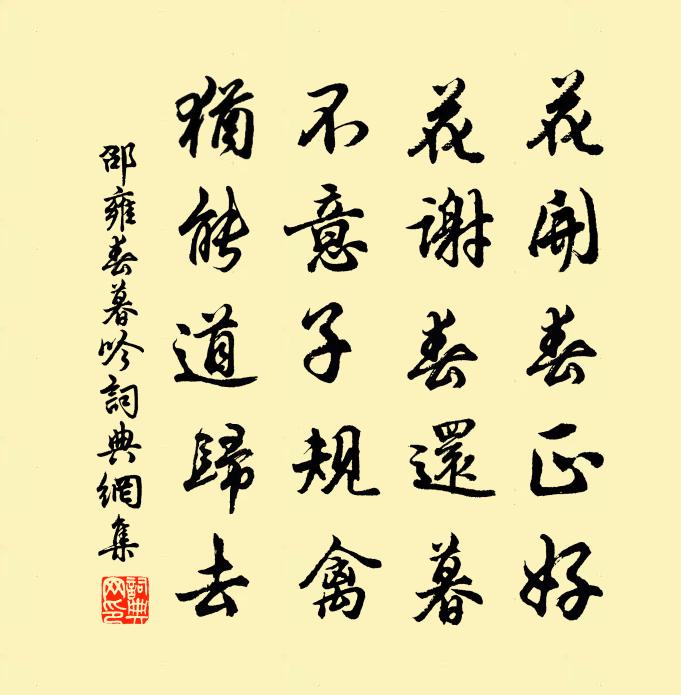 花開春正好
花謝春還暮
不意子規禽
猶能道歸去
邵雍春暮吟詞典網集